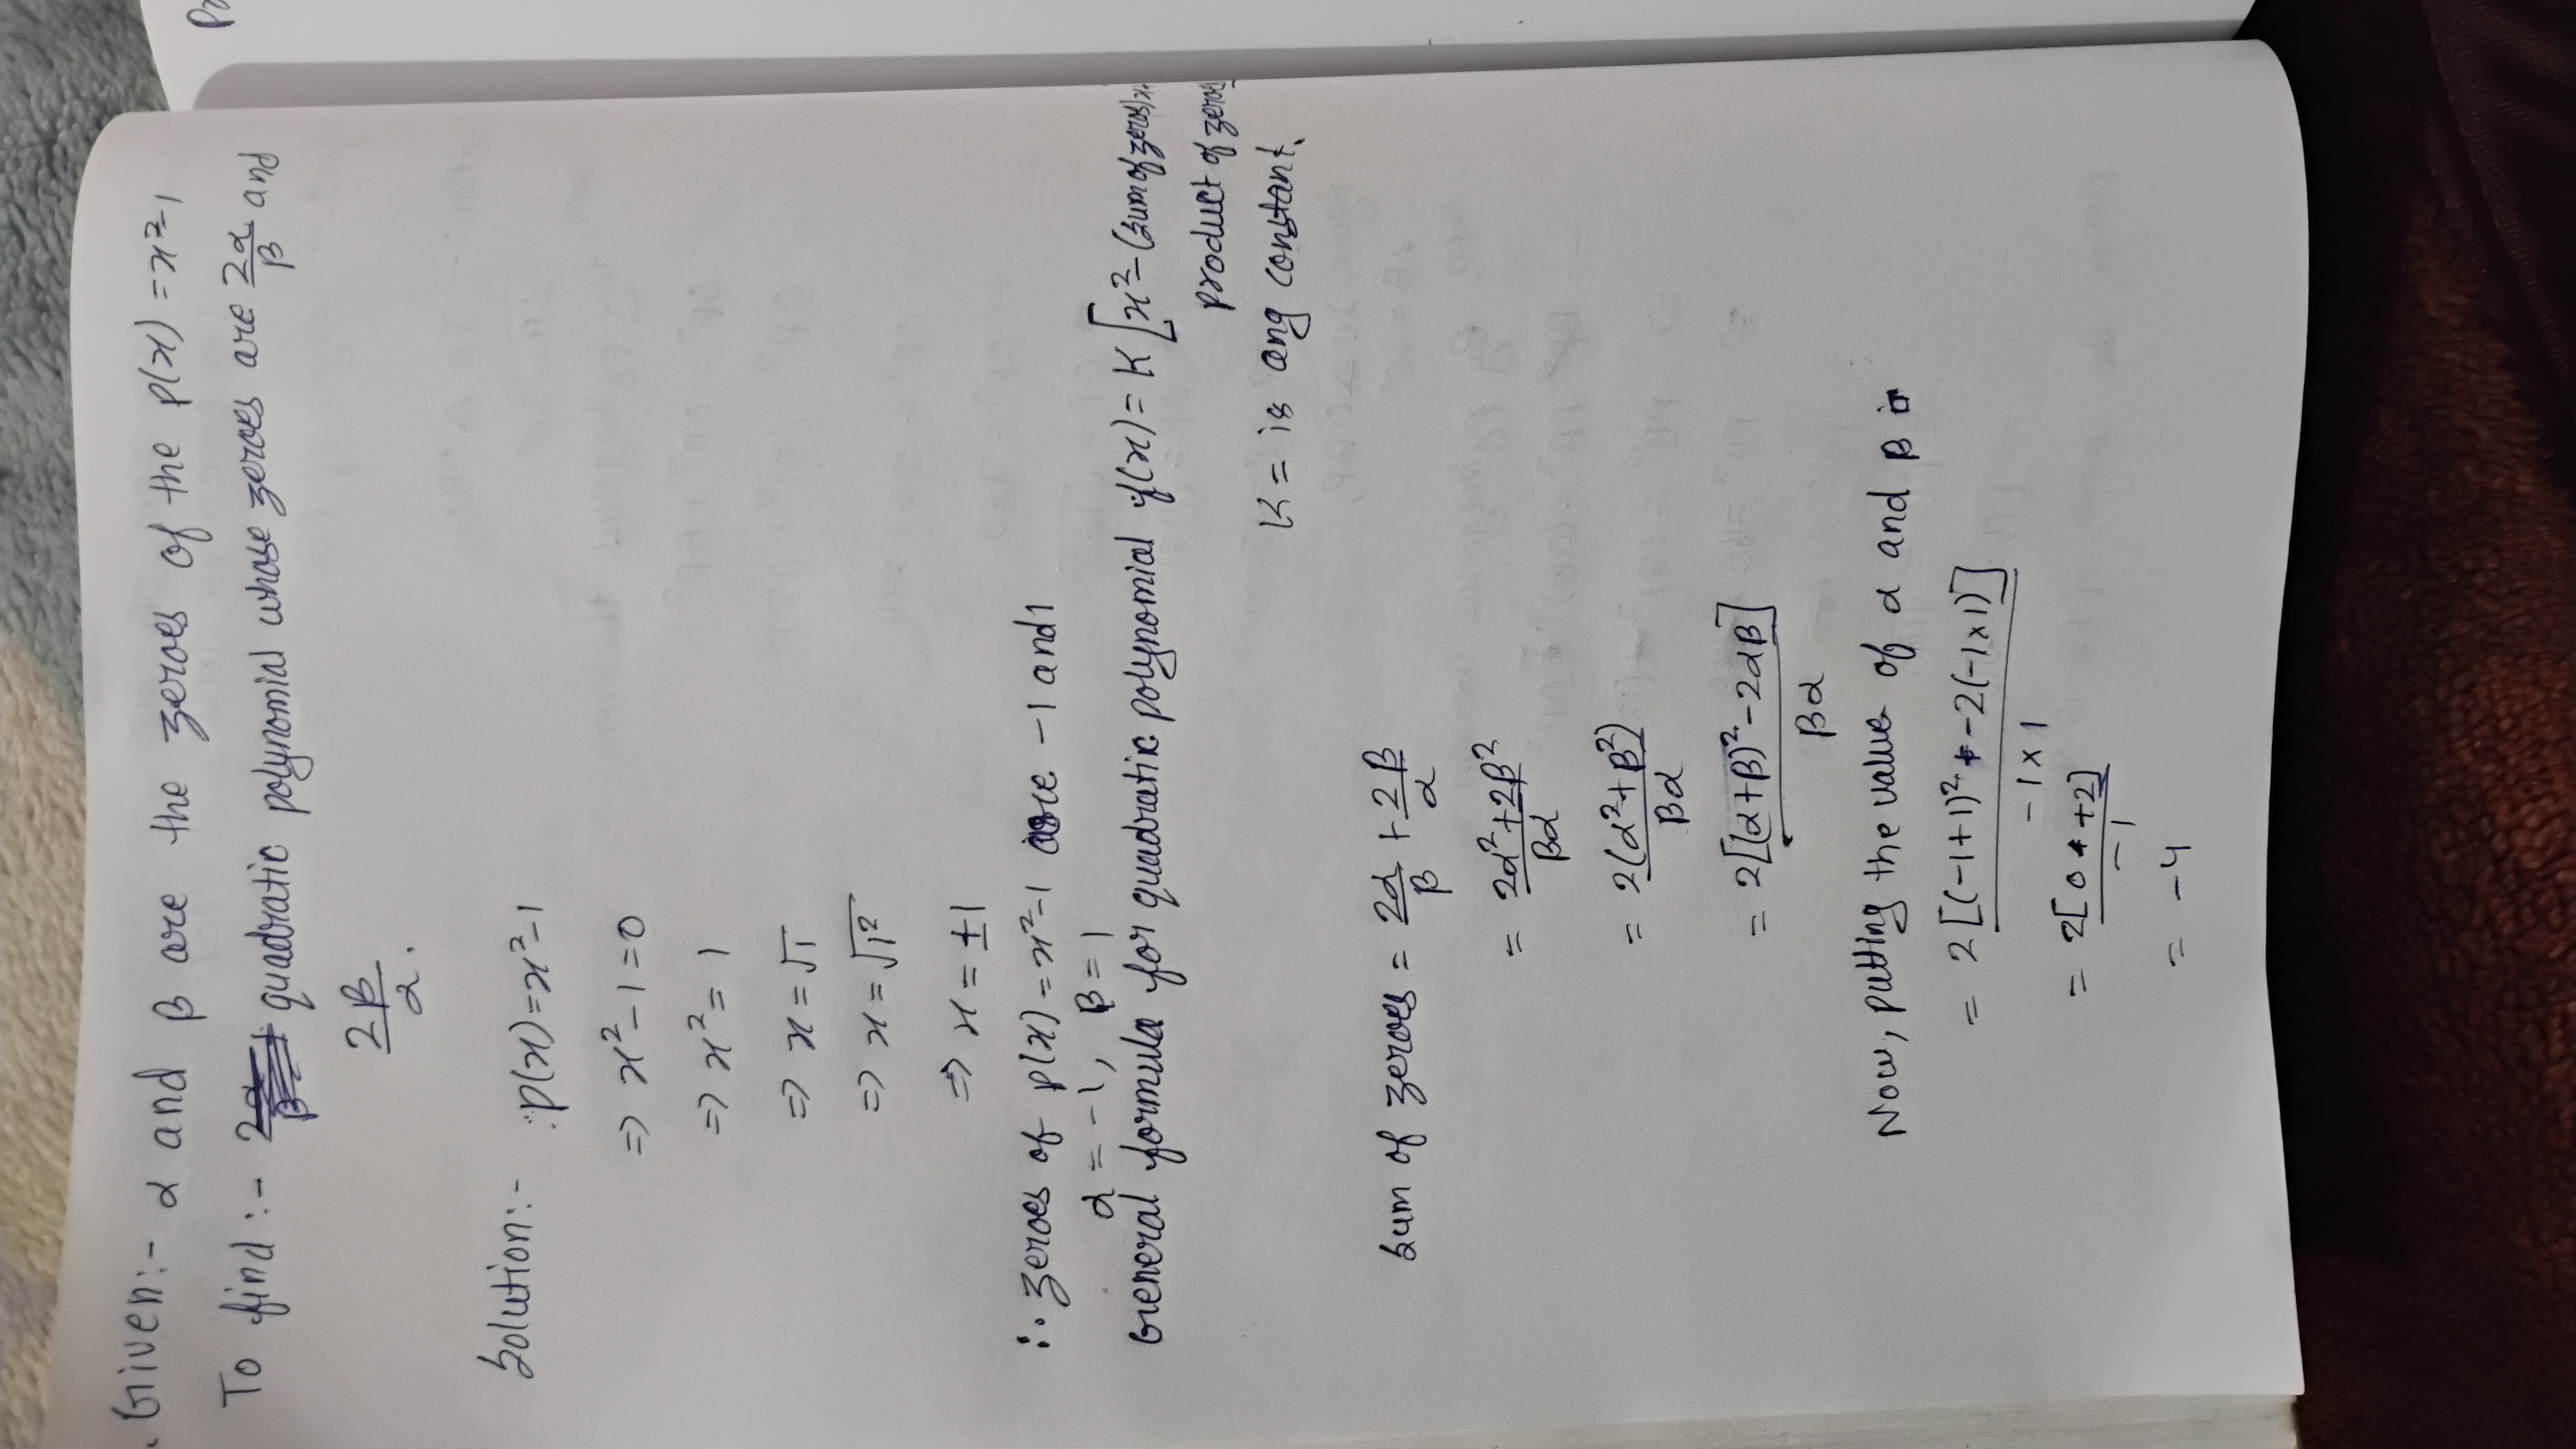 Pr
Given:- α and β are the zeroes of the p(x) = x²-1
To find:- quadratic polynomial whose zeroes are 2α/β and
2β/α.
Solution:- p(x)=x²-1
=> x²-1=0
=> x² = 1
=> x = √1
=> x = √1²
=> x = ±1
∴ zeroes of p(x) = x²-1 are -1 and 1
α = -1, β = 1
General formula for quadratic polynomial f(x) = K [x²-(sum of zeroes)x+
product of zeroes
K = is any constant.
Sum of zeroes = 2α/β + 2β/α
= 2α²+2β²/βα
= 2(α²+β²)/βα
= 2[(α+β)²-2αβ]/βα
Now, putting the value of α and β in
= 2[(-1+1)²-2(-1×1)]/-1×1
= 2[0+2]/-1
= -4